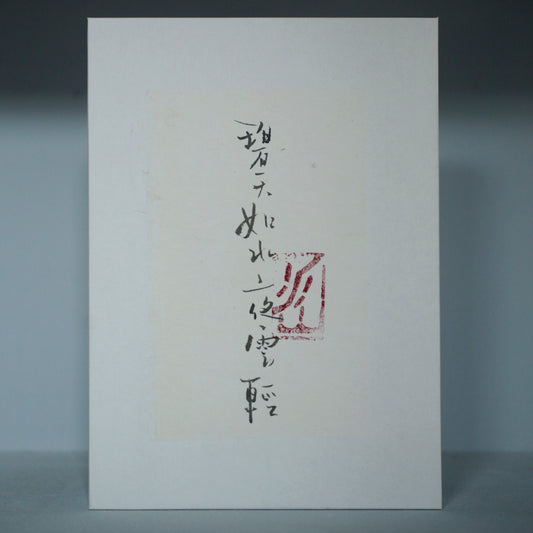 碧天如水夜雲輕